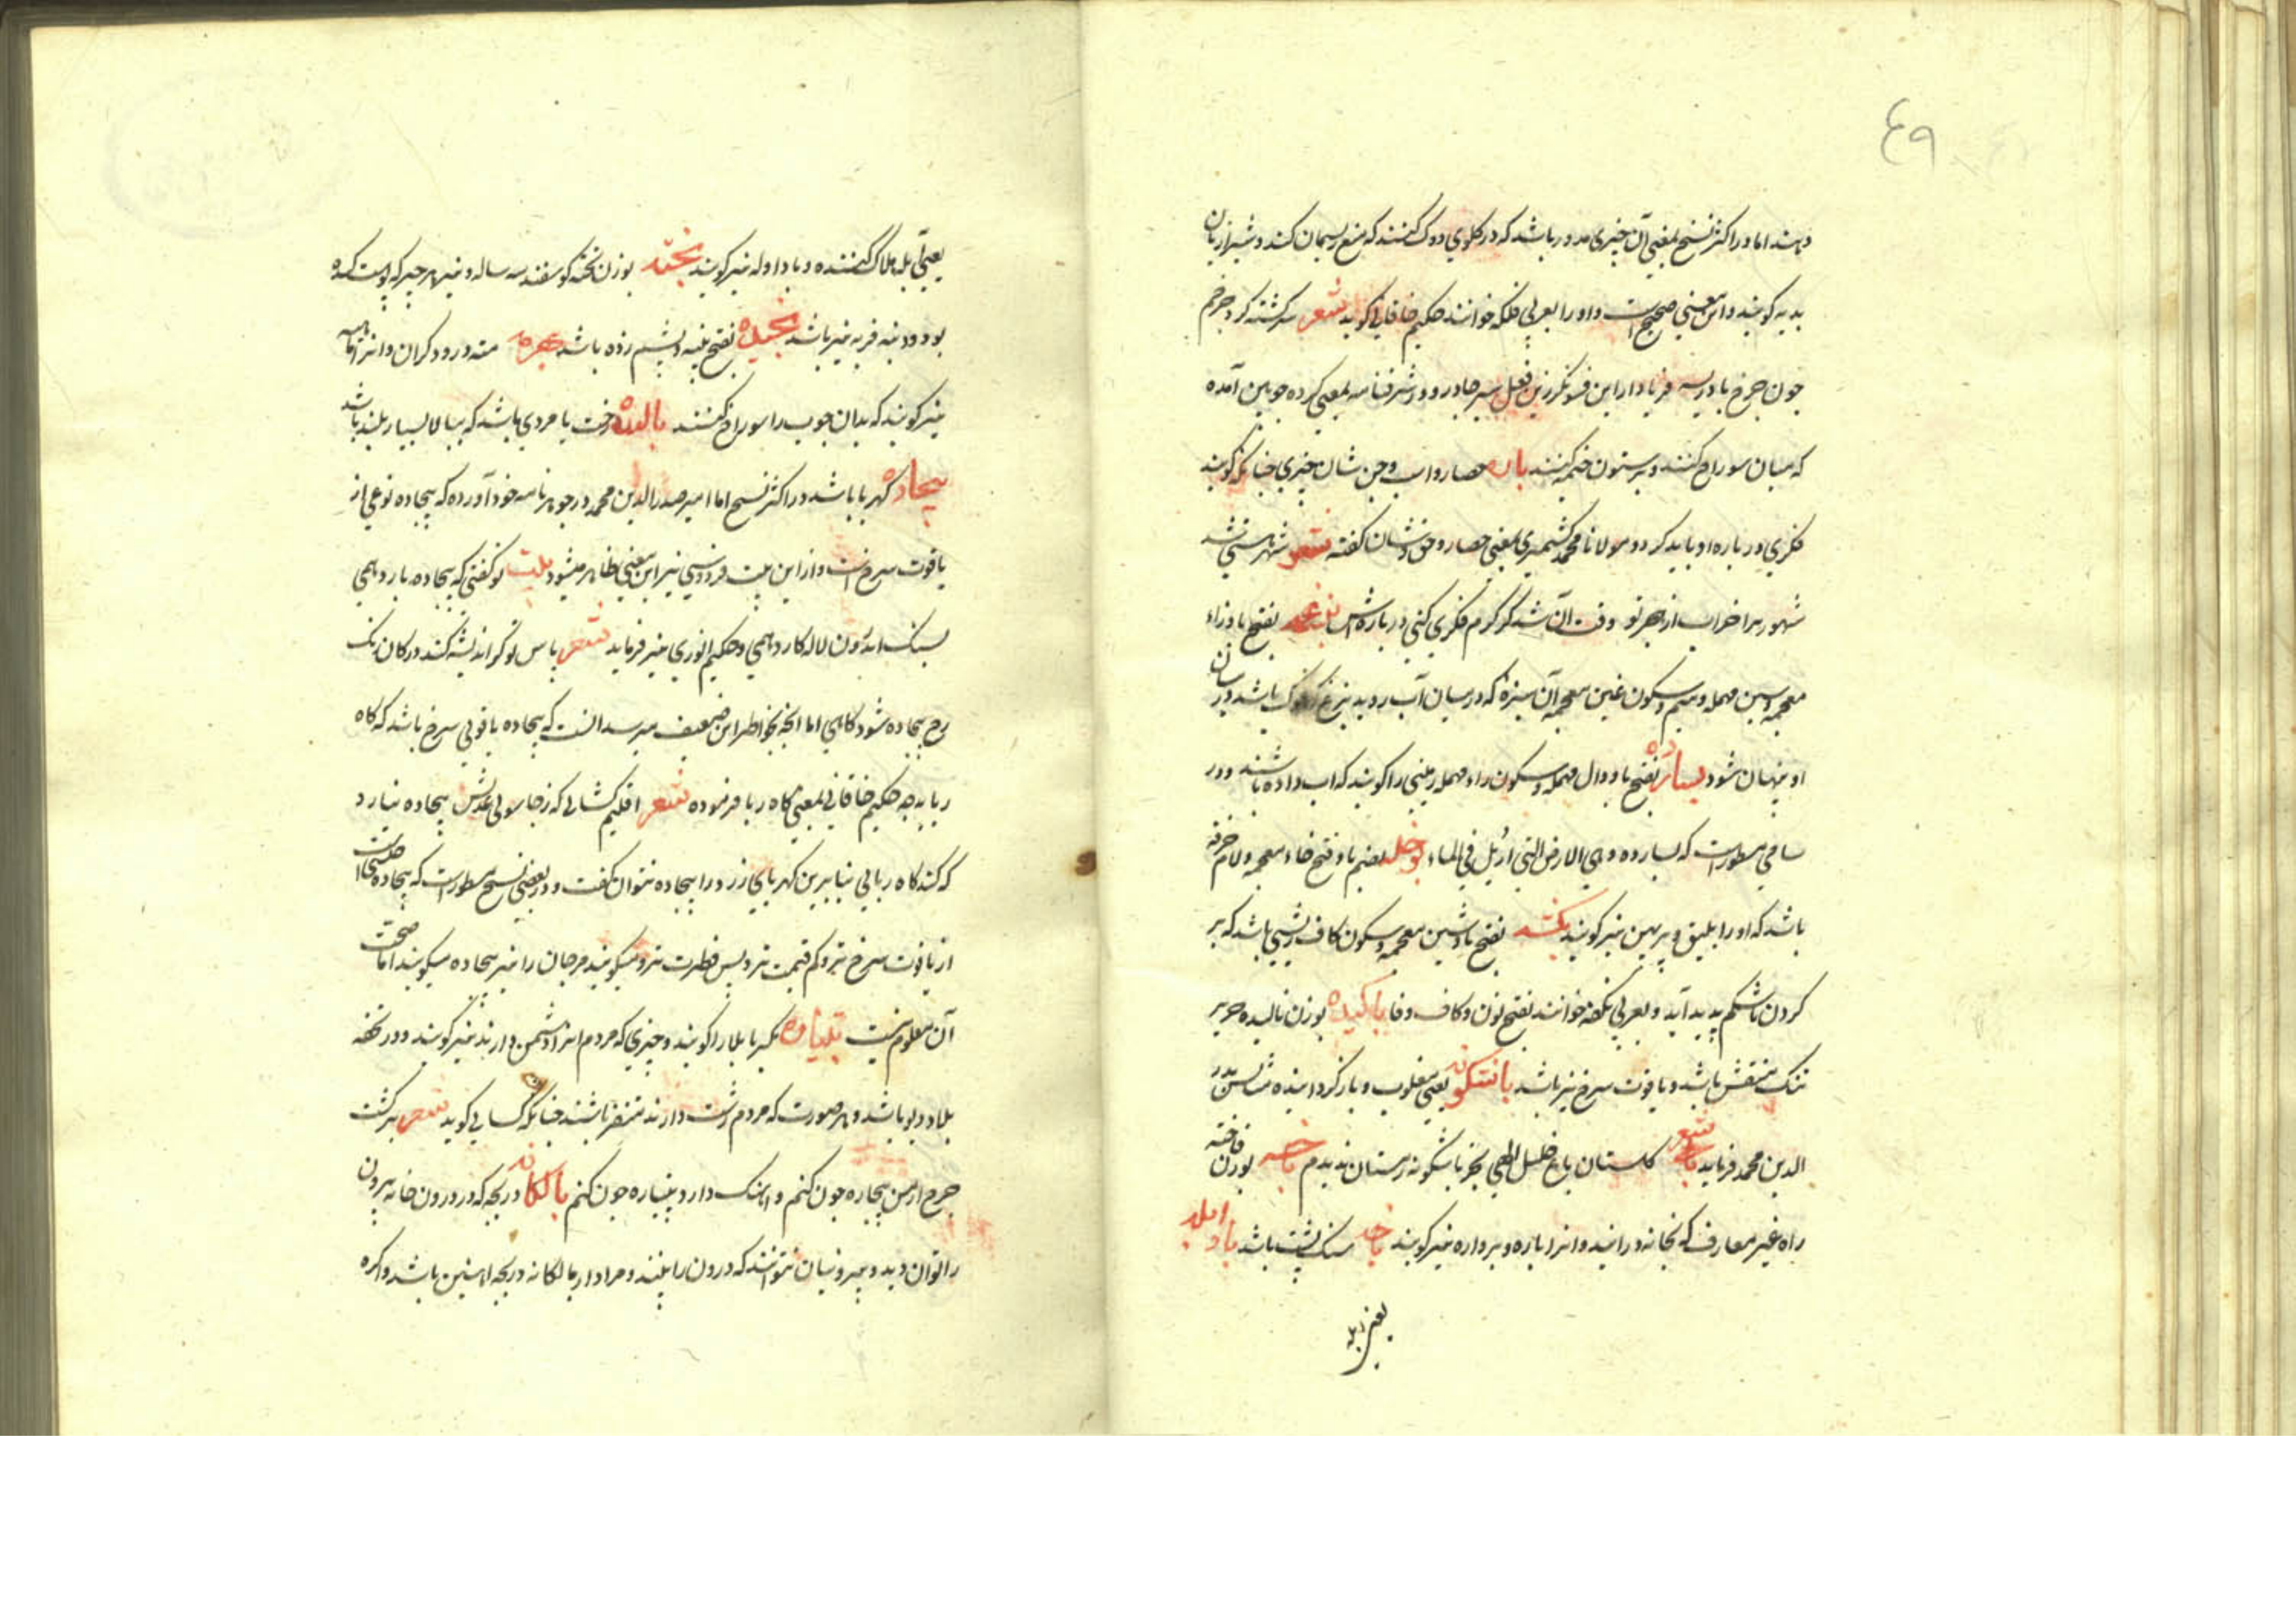 ٤٩
دهند اما در اکثر نسخ بمعنی آن چیزی مدور باشد که در کلوی دوک کنند که منع ریسمان کند و شیرازیان
بدیه کویند و این معنی صحیح است و او را بعربی فلکه خوانند حکیم خاقانی کوید شعر سرکشته کرد چرخم
چون چرخ بادریسه فریاد از این فسونکر زین فعل سبز چادر و در شرفنامه بمعنی کرده چوبین آمده
که میان سوراخ کنند و بر ستون خیمه کنند باره حصار و اسب و حق و شان چیزی چنانکه کویند
فکری در باره او باید کرد و مولانا محمد کشمیری بمعنی حصار و حق و شان کفته شعر
شهور مرا خراب از هجر تو وقت آن شد کز کرم فکری کنی در باره اش بفتح با و زاء
معجمه و سین مهمله و میم و سکون غین معجمه آن سبزه که در میان آب روید باشد در میان
او پنهان شود بسارده بفتح با و دال مهمله و سکون راء مهمله زمینی را کویند که آب داده باشند و در
سامی مسطور است که بسارده و هی الارض التی ارسل فی الماء بوخله بضم با و فتح خاء معجمه و لام خرفه
باشد که او را بلیق و پرپهن نیز کویند بفتح با و شین معجمه و سکون کاف ریشی باشد که بر
کردن تا شکم پدید آید و بعربی نکفه خوانند بفتح نون و کاف و فا باکیده بوزن نالیده حریر
تنک منقش باشد و یاقوت سرخ نیز باشد باشکونه یعنی مقلوب و باز کردانیده مثالش بدر
الدین محمد فرماید شعر کلستان باغ خلیل الهی بجز باشکونه زمستان ندیدم باخسه بوزن فاخته
راه غیر معارف که بخانه درآیند و آنرا باره و برواره نیز کویند باخه سنک پشت باشد باد ابله
یعنی آبله
یعنی آبله هلاک کننده و باد اوله نیز کویند بخته بوزن تخته کوسفند سه ساله و نیز هر چیز که پوست کنده
بود و دنبه فربه نیز باشد بخیده بفتح پنبه و پشم زده باشد بهرمه مته درودکران و آنرا
نیز کویند که بدان چوب را سوراخ کنند بالوده درخت یا مردی باشد که ببالا بسیار بلند باشد
بیجاده کهربا باشد در اکثر نسخ اما امیر صدرالدین محمد در جوهرنامه خود آورده که بیجاده نوعی از
یاقوت سرخ است و از این بیت فردوسی نیز این معنی ظاهر میشود بیت تو کفتی که بیجاده بارد همی
بسنک اندرون لاله کارد همی و حکیم انوری نیز فرماید شعر باس تو کر اندیشه کند در کان زنک
رخ بیجاده شود کاهی اما آنچه بخاطر این ضعیف میرسد آنست که بیجاده یاقوتی سرخ باشد که کاه
رباید چه حکیم خاقانی بمعنی کاه ربا فرموده شعر اقلیم کشائی که ز جاسوسی عدلش بیجاده نیارد
که کند کاه ربائی بنابرین کهربای زرد را بیجاده نتوان کفت و در بعضی نسخ مسطور است که بیجاده
از یاقوت سرخ تر و کم قیمت تر و پس فطرت تر و میکویند مرجان را نیز بیجاده میکویند اما صحت
آن معلوم نیست بتیاره بکسر با بلا را کویند و چیزی که مردم آنرا دشمن دارند نیز کویند و در تحفه
بلا و دیو باشد و هر صورت که مردم زشت دارند متنفر باشند چنانکه کسائی کوید شعر برکشت
چرخ از من بیچاره چون کنم و آهنک دارد بتیاره چون کنم بالکانه دریچه که در درون خانه بیرون
را توان دید و بیرونیان نتوانند که درون را بینند و مراد از بالکانه دریچه آهنین باشد و اکره